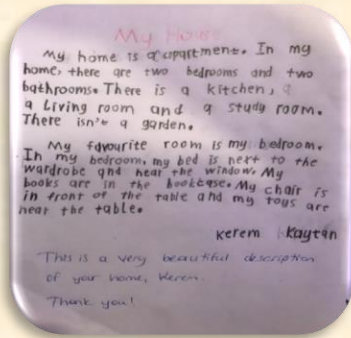 My House
My home is a apartment. In my
home, there are two bedrooms and two
bathrooms. There is a kitchen, a
a Living room and a study room.
There isn't a garden.
My favourite room is my bedroom.
In my bedroom, my bed is next to the
wardrobe and near the window. My
books are in the bookcase. My chair is
in front of the table and my toys are
near the table.
Kerem Kaytan
This is a very beautiful description
of your home, Kerem.
Thank you!